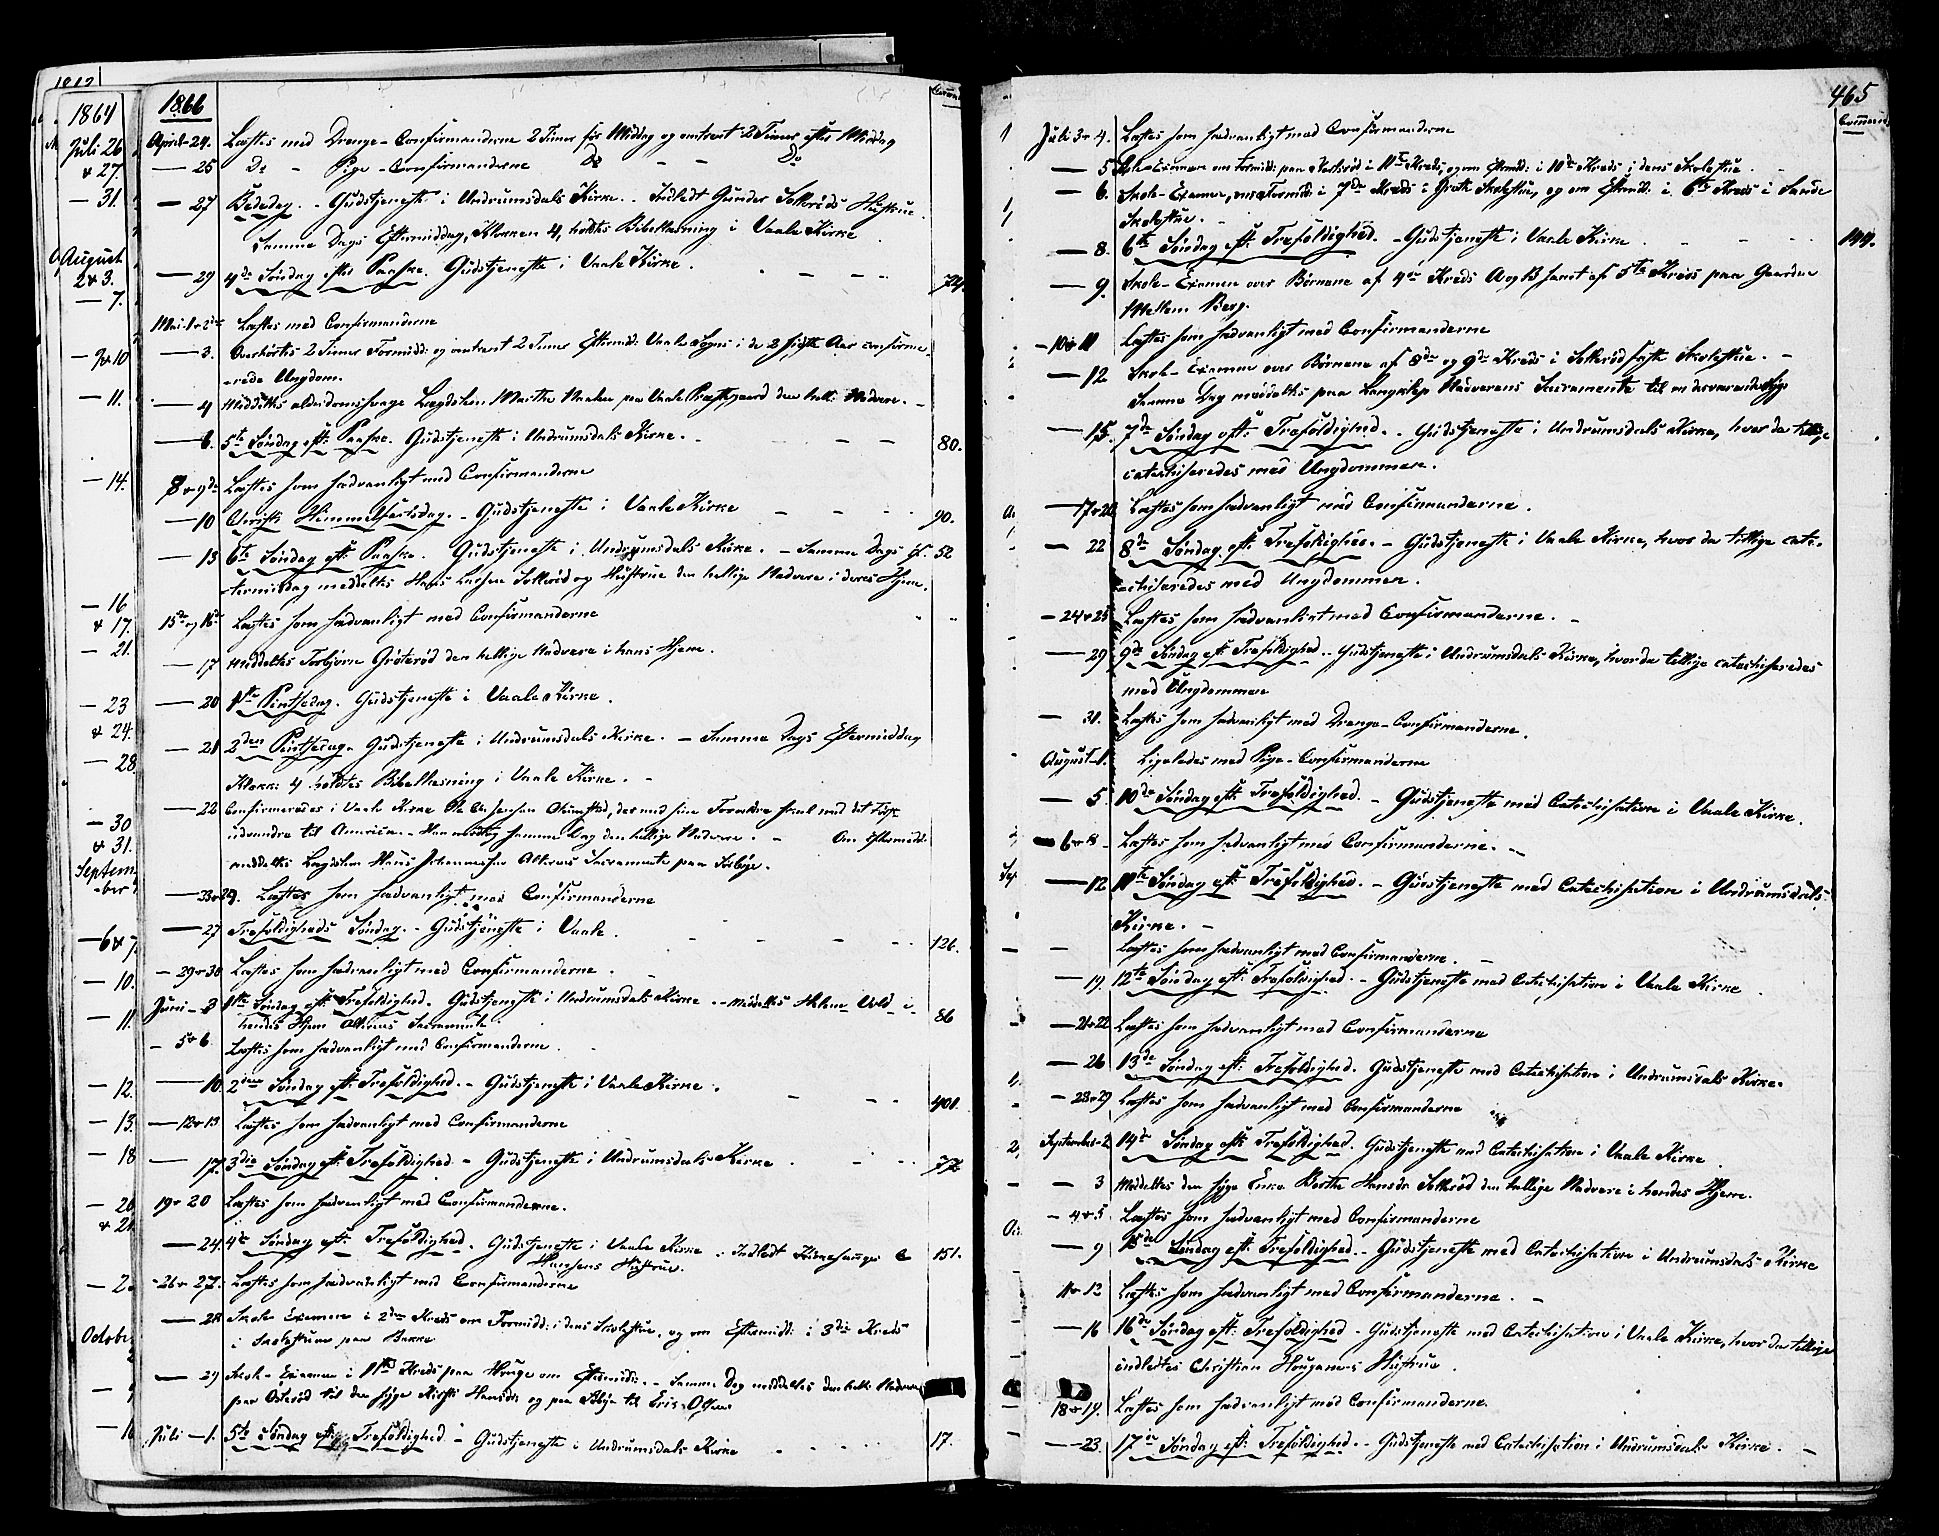 1866
April 24. Læstes med Drenge-Confirmanderne 2 Timer før Middag og omtrent 2 Timer efter Middag
— 25 Do - Pige-Confirmanderne Do - - Do
— 27 Bededag. - Gudstjeneste i Undrumsdals Kirke. - Indledt Gunder Solerøds Hustrue.
Samme Dags Eftermiddag, Klokken 4, holdtes Bibellæsning i Vaale Kirke
— 29 4de Søndag efter Paaske. Gudstjeneste i Vaale Kirke. 74.
Mai 1 & 2den Læstes med Confirmanderne
— 3. Overhørtes 2 Timer Formidd: og omtrent 2 Timer Eftermid: Vaale Sogns i de 2 sidste Aar confirme-
-rede Ungdom.
— 4 Meddeltes alderdomssvage Lægdslem Marthe paa Vaale Præstegaard den hell: Nadvere. -
— 6. 5te Søndag eft: Paaske. Gudstjeneste i Undrumsdals Kirke. 80.
8 & 9de Læstes som sædvanligt med Confirmanderne
— 10 Christi Himmelfartsdag. - Gudstjeneste i Vaale Kirke 90.
— 13 6te Søndag eft: Paaske. Gudstjeneste i Undrumsdals Kirke. - Samme Dags Ef- 52
-termiddag meddeltes Hans Larsen Solerød og Hustrue den hellige Nadvere i deres Hjem.
15de og 16de Læstes som sædvanligt med Confirmanderne
— 17 Meddeltes Torbjørn Grøterød den hellige Nadvere i hans Hjem.
— 20 1ste Pintsedag. Gudstjeneste i Vaale Kirke.
— 21 2den Pintsedag. Gudstjeneste i Undrumsdals Kirke. - Samme Dags Eftermiddag
Klokk: 4 holdtes Bibellæsning i Vaale Kirke. -
— 22 Confirmeredes i Vaale Kirke Ole Chr. Jensen, der med sine Forældre skal med det første
udvandre til America. - Han modtog samme Dag den hellige Nadvere. - Om Eftermidd:
meddeltes Lægdslem Hans Johannessen Alterens Sacramente paa Sørbye.
— 23 & 24. Læstes som sædvanligt med Confirmanderne
— 27 Trefoldigheds Søndag. - Gudstjeneste i Vaale. 126.
— 29 & 30 Læstes som sædvanligt med Confirmanderne.
Juni — 3 1ste Søndag eft: Trefoldighed. Gudstjeneste i Undrumsdals Kirke. - Meddeltes Helene Vold i- 86
hendes Hjem Alterens Sacramente.
— 5 & 6 Læstes som sædvanligt med Confirmanderne.
— 10. 2den Søndag eft: Trefoldighed. - Gudstjeneste i Vaale Kirke. 401.
— 12 & 13 Læstes som sædvanligt med Confirmanderne
— 17. 3die Søndag eft: Trefoldighed. - Gudstjeneste i Undrumsdals Kirke. 72
19 & 20 Læstes som sædvanligt med Confirmanderne.
— 24. 4de Søndag eft: Trefoldighed. Gudstjeneste i Vaale Kirke. Indledt Kirkesanger C 151.
Hansens Hustrue.
— 26 & 27. Læstes som sædvanligt med Confirmanderne
— 28 Skole-Examen i 2den Kreds om Formidd: i dens Skolestue, og om Eftermidd: i 3die Kreds
i Skolestuen paa Bakke
— 29 Skole-Examen i 11te Kreds paa Hauge om Eftermidd: - Samme Dag meddeltes den hell: Nadvere
paa Osterød til den syge Kirsti Hansdr: og paa Sørbye til Eric Olsen
Juli — 1. 5te Søndag eft: Trefoldighed - Gudstjeneste i Undrumsdals Kirke 17.
1864
Juli 26
& 27.
— 31.
August
2 & 3.
— 7.
— 9 & 10
— 11.
— 14.
— 16
& 17.
— 21.
— 23
& 24.
— 28
— 30
& 31.
Septem-
-ber
— 6 & 7
— 10.
— 11.
— 12.
— 13.
— 18
— 20
& 21
— 2
Octobe
465
Juli 3 & 4. Læstes som sædvanligt med Confirmanderne
— 5 Skole-Examen om Formidd: paa i 11te Kreds, og om Eftmidd: i 10de Kreds i dens Skolestue.
— 6. Skole-Examen, om Formidd: i 7de Kreds i Skolestue, og om Eftmidd: i 6te Kreds i Sande
Skolestue. -
— 8. 6te Søndag eft: Trefoldighed. - Gudstjeneste i Vaale Kirke 144.
— 9. Skole-Examen over Børnene af 4de Kreds A og B samt af 5te Kreds paa Gaarden
Mellem Berg.
— 10 & 11 Læstes som sædvanligt med Confirmanderne
— 12 Skole-Examen over Børnene af 8de og 9de Kreds i Solerød faste Skolestue. -
Samme Dag meddeltes paa Langklep Nadverens Sacramente til en derværende Syg
— 15. 7de Søndag eft: Trefoldighed. - Gudstjeneste i Undrumsdals Kirke, hvor der tillige
catechiseredes med Ungdommen.
— 17 & 20. Læstes som sædvanligt med Confirmanderne.
— 22 8de Søndag eft: Trefoldighed. - Gudstjeneste i Vaale Kirke, hvor der tillige cate-
-chiseredes med Ungdommen.
— 24 & 25 Læstes som sædvanligt med Confirmanderne.
— 29 9de Søndag eft: Trefoldighed. - Gudstjeneste i Undrumsdals Kirke, hvor der tillige catechiseredes
med Ungdommen
— 31. Læstes som sædvanligt med Drenge-Confirmanderne.
August — 1. Ligeledes med Pige-Confirmanderne
— 5. 10de Søndag eft: Trefoldighed. - Gudstjeneste med Catechisation i Vaale Kirke.
— 6 & 8 Læstes som sædvanligt med Confirmanderne.
— 12 11te Søndag eft: Trefoldighed. - Gudstjeneste med Catechisation i Undrumsdals
Kirke. -
— Læstes som sædvanligt med Confirmanderne.
— 19. 12te Søndag eft: Trefoldighed. - Gudstjeneste med Catechisation i Vaale Kirke
— 21 & 22 Læstes som sædvanligt med Confirmanderne
— 26 13de Søndag eft: Trefoldighed. Gudstjeneste med Catechisation i Undrumsdals Kirke.
— 28 & 29 Læstes som sædvanligt med Confirmanderne
September 2 14de Søndag eft: Trefoldighed. Gudstjeneste med Catechisation i Vaale Kirke
— 3 Meddeltes den syge Enke Berthe Hansdr: Solerød den hellige Nadvere i hendes Hjem.
— 4 & 5 Læstes som sædvanligt med Confirmanderne
— 9 15de Søndag eft: Trefoldighed. - Gudstjeneste med Catechisation i Undrumsdals Kirke
11 & 12 Læstes som sædvanligt med Confirmanderne. -
— 16 16de Søndag eft: Trefoldighed - Gudstjeneste med Catechisation i Vaale Kirke, hvor der tillige
indledtes Christian Haugans Hustrue.
18 & 19. Læstes som sædvanligt med Confirmanderne.
— 23. 17de Søndag eft: Trefoldighed. - Gudstjeneste med Catechisation i Undrumsdals Kirke. -